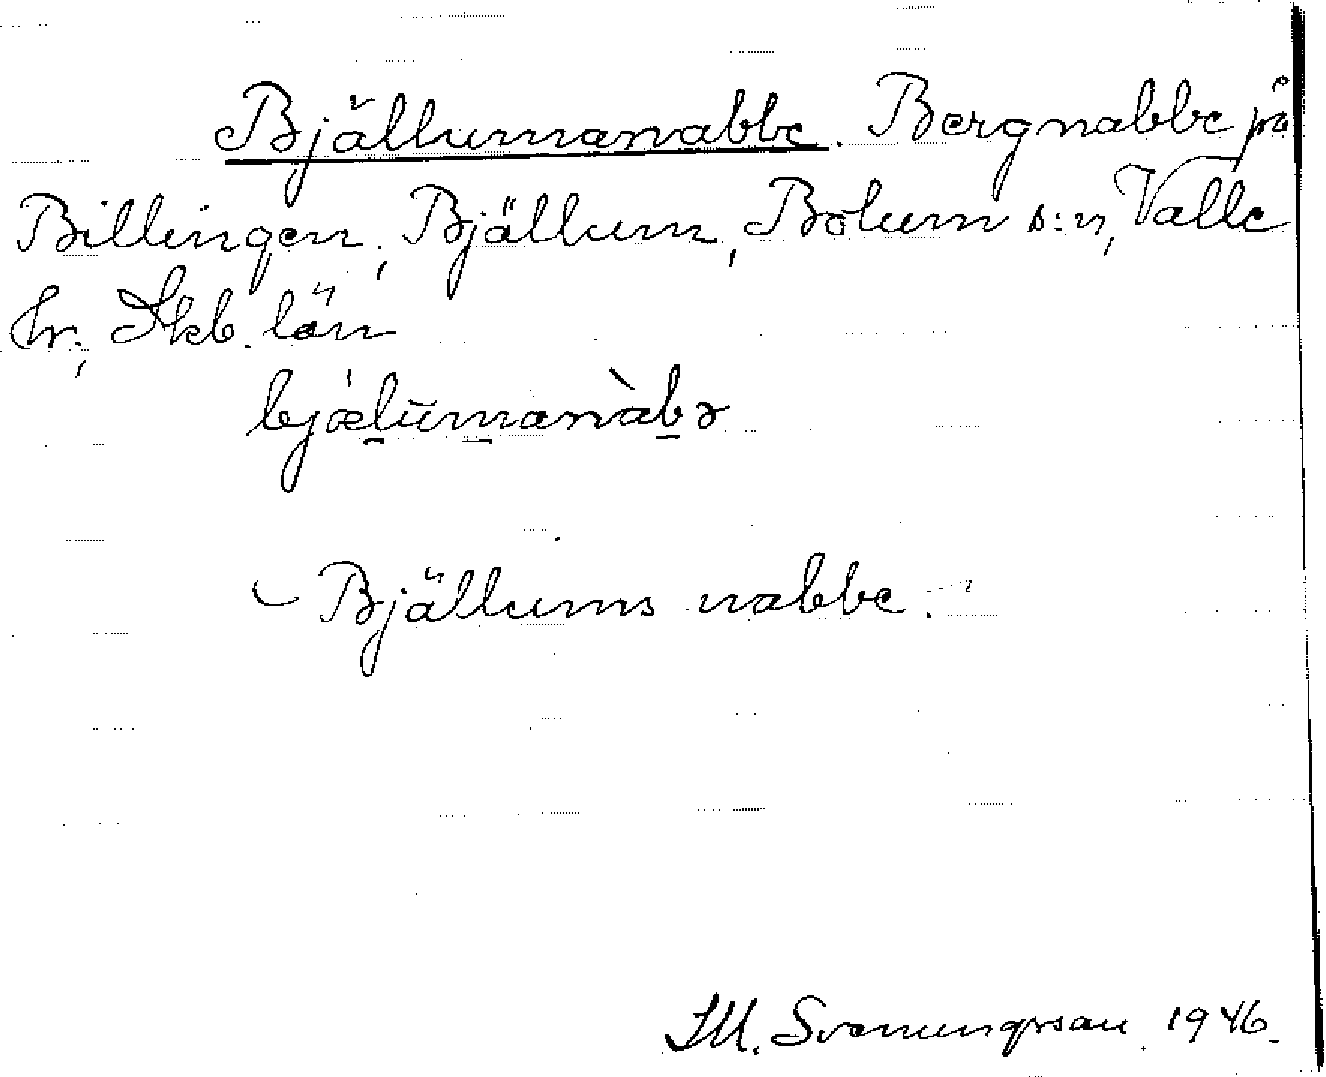 Bjällumanabbe. Bergnabbe på
Billingen, Bjällum, Bolum s:n, Valle
hr, Skb. län
bjælumanàbə
Bjällums nabbe.
M. Svenungsson 1946.